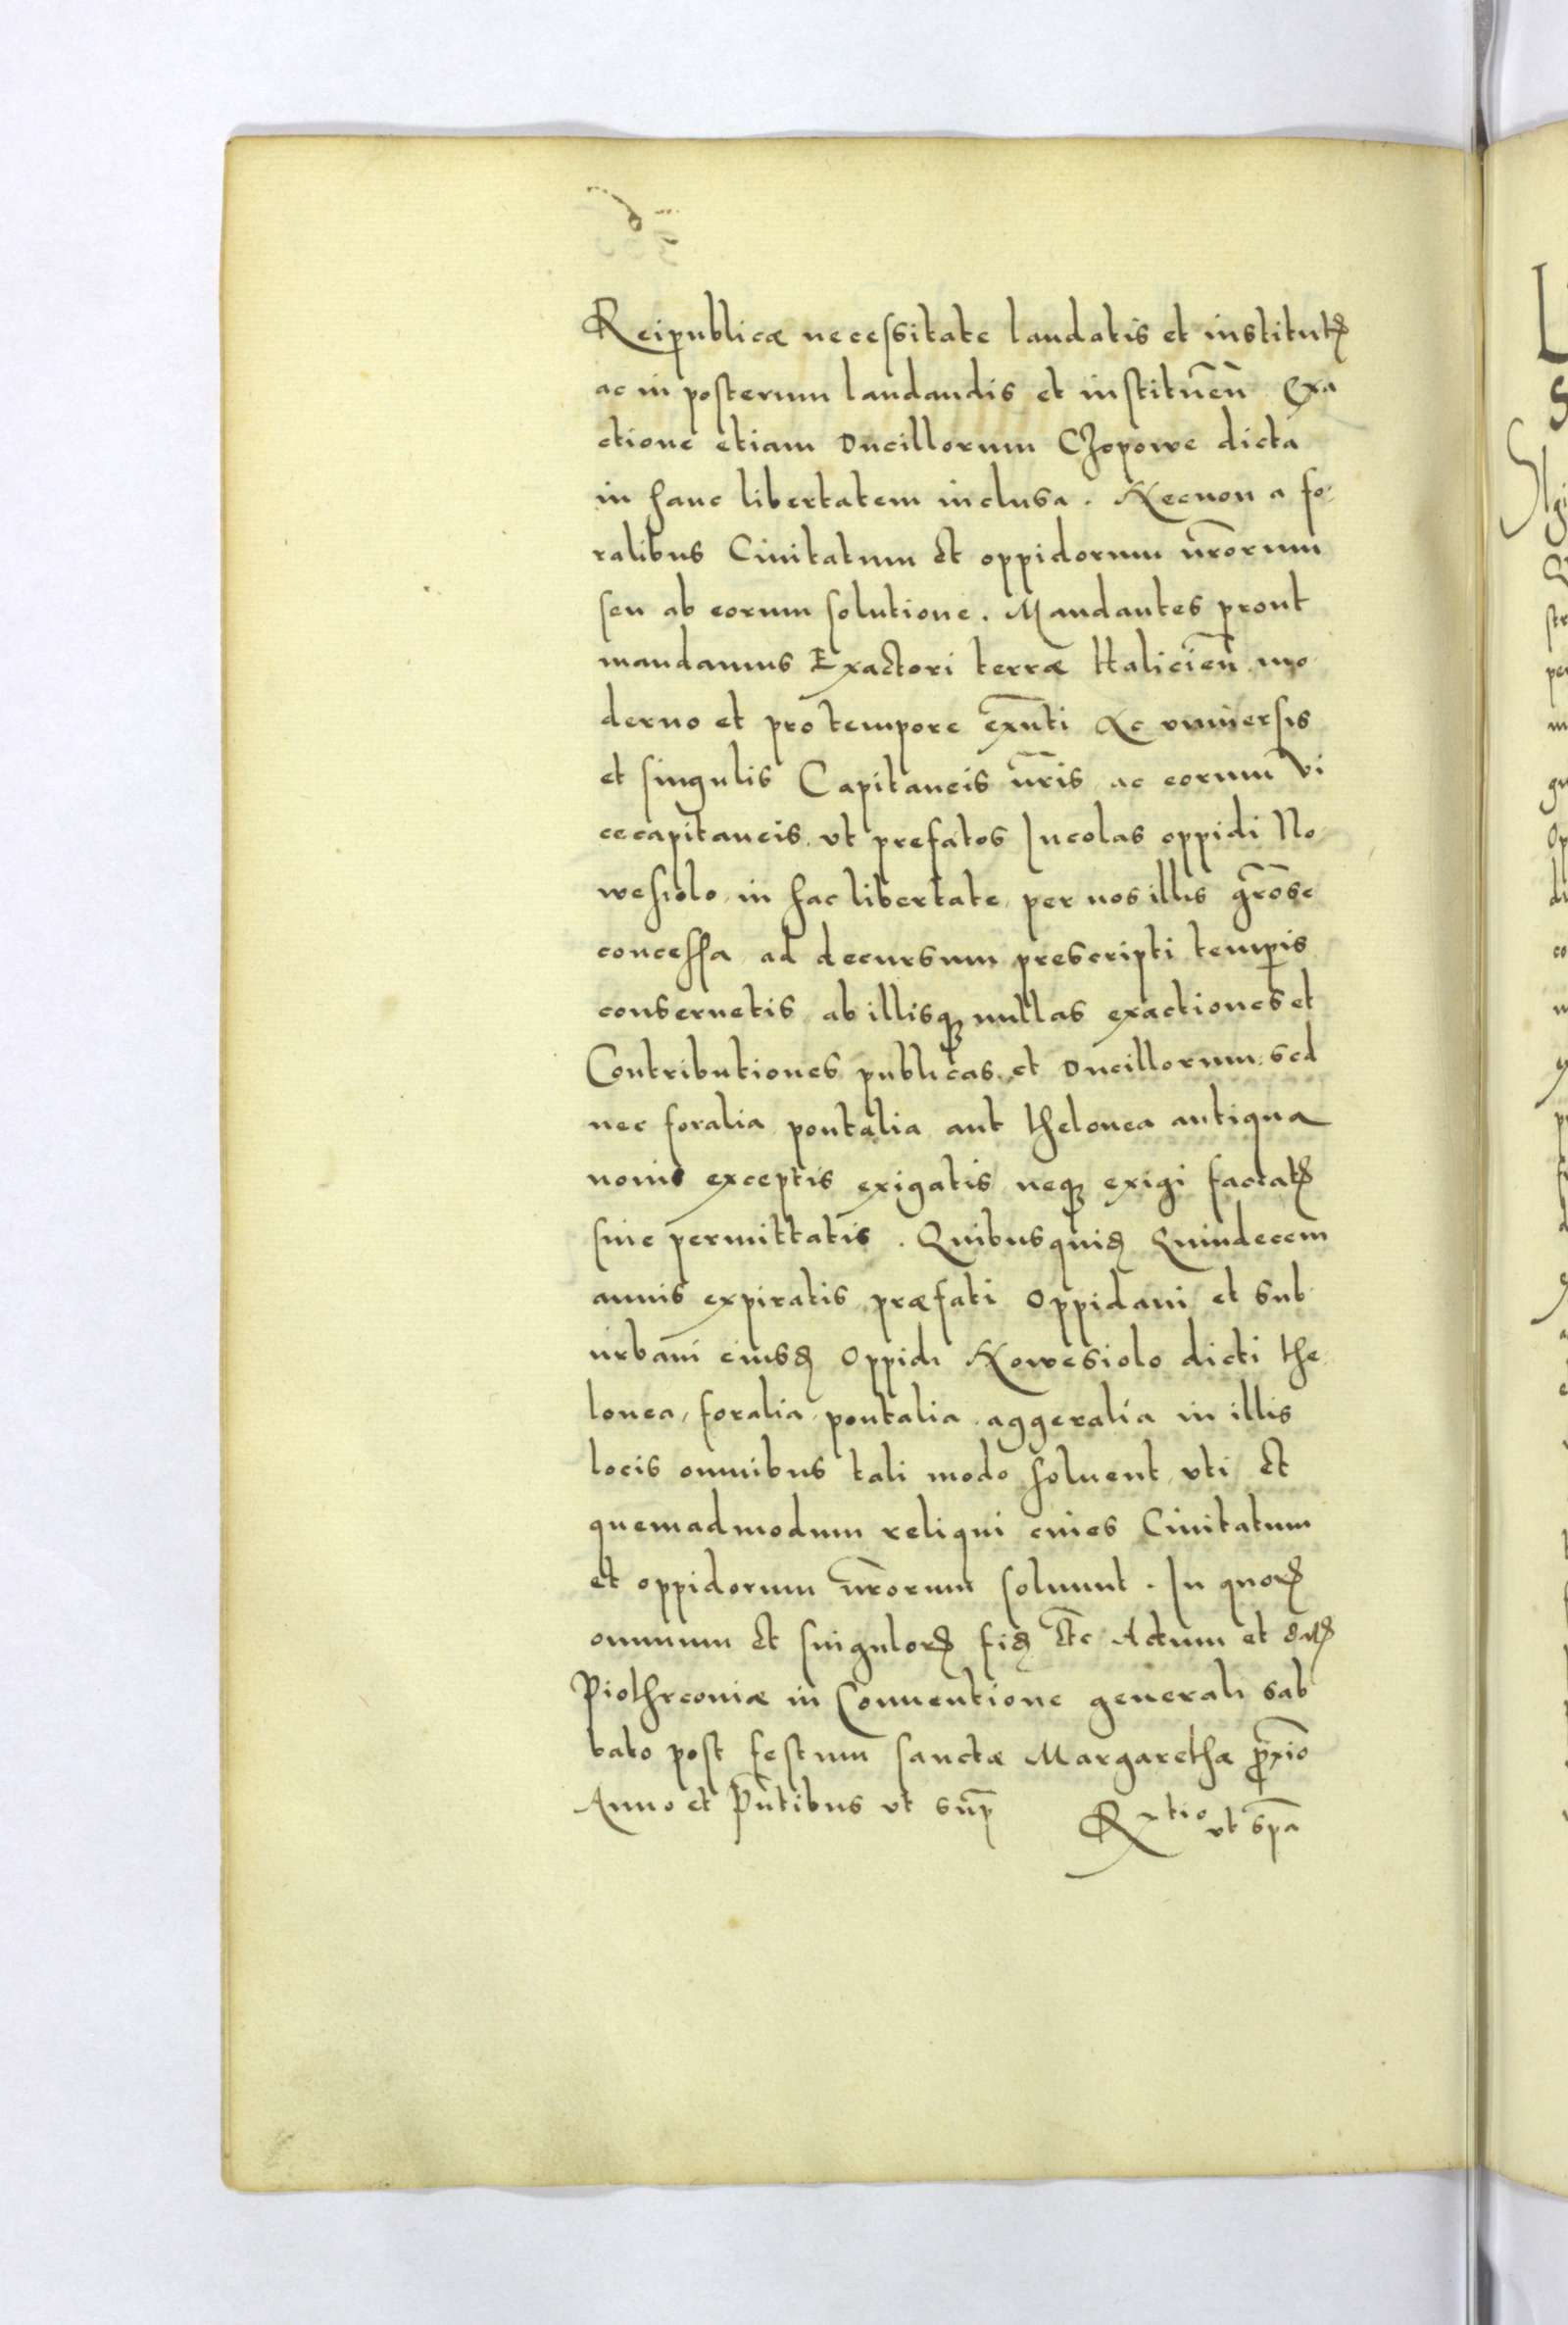 Reipublicæ necessitate laudatis et institutꝭ
ac in posterum laudandis et instituẽñ Exa
ctione etiam Ducillorum Czopowe dicta
in hanc libertatem inclusa. Necnon a fo
ralibus Ciuitatum et oppidorum nr̃orum
seu ab eorum solutione. Mandantes prout
mandamus Exactori terræ Haliciẽn mo
derno et pro tempore exñti Ac vniuersis
et singulis Capitaneis nr̃is ac eorum vi
cecapitaneis vt prefatos Incolas oppidi No
wesiolo in hac libertate per nos illis gr̃ose
concessa ad decursum prescripti temp̱is
conseruetis ab illisqꝫ nullas exactiones et
Contributiones publicas et Ducillorum sed
nec foralia pontalia aut thelonea antiqua
nouis exceptis exigatis neqꝫ exigi faciatꝭ
siue permittatis. Quibusquidꝫ Quindecem
annis expiratis præfati Oppidani et sub
urbani eiusdꝫ Oppidi Nowesiolo dicti the
lonea, foralia pontalia aggeralia in illis
locis omnibus tali modo soluent vti et
quemadmodum reliqui ciues Ciuitatum
et oppidorum nr̃orum soluunt. In quorꝝ
omnium et singulorꝝ fidꝫ etc̃ Actum et datꝭ
Piothrconiæ in Conuentione generali sab
bato post festum sanctæ Margarethæ pr̃xio
Anno et p̃ntibus vt sup̃
Rxtio vt sp̃a